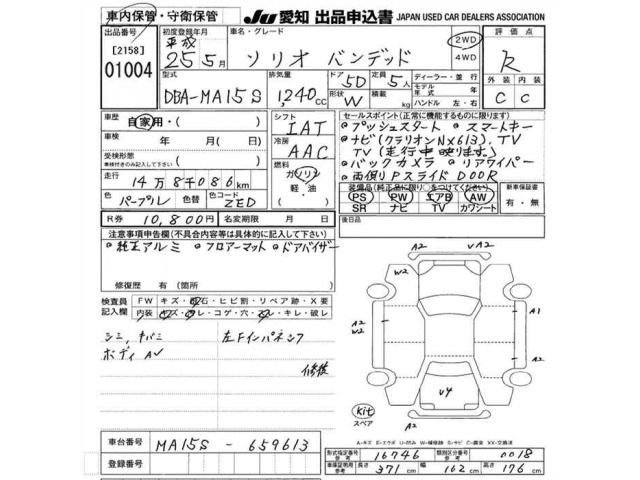 車内保管・守衛保管
JU 愛知 出品申込書 JAPAN USED CAR DEALERS ASSOCIATION
出品番号
[2158]
01004
初度登録年月
平成
25 5月
車名・グレード
ソリオ バンデッド
2WD
4WD
評価点
R
外装 内装
C C
型式
DBA-MA15S
排気量
1,240cc
ドア 5D
形状 W
定員 5人
積載 kg
ディーラー・並行
モデル年式 年
ハンドル 左・右
車歴
自家用・( )
車検
年 月( 日)
受検形態
車検付きのみ記入して下さい
( )
走行
14万8千086km
色 パープル
色替
色コード ZED
シフト
IAT
冷房
AAC
燃料
ガソリン
軽・油
( )
セールスポイント(正常に機能するものに限ります)
・プッシュスタート ・スマートキー
・ナビ(クラリオンNX613)、TV
TV(走行中映ります。)
・バックカメラ ・リアワイパー
・両側PスライドDOOR
装備品(純正品に限り○をつけてください)
PS PW エアB AW
SR ナビ TV カワシート
新車保証書
有・無
R券 10,800円
名変期限 月 日
後日品
注意事項申告欄(不具合内容等は具体的に記入して下さい)
・純正アルミ ・フロアーマット ・ドアバイザー
修復歴 有(箇所 )
検査員
記入欄
FW キズ・飛石・ヒビ割・リペア跡・X要
内装 キズ・汚レ・コゲ・穴・スレ・キレ・破レ
シミ、キバミ
ボディ AV
左Fインパネシワ
修復
A2 VA2
W2
A2
W2
A1
A2
V4
A2
A2
kit
スペア
A=キズ E=エクボ U=凹み W=補修跡 S=サビ C=腐食 XX=交換済
車台番号
MA15S-659613
登録番号
形式指定番号 16746
類別区分番号 0018
車庫証明用参考 長さ 371cm 幅 162cm 高さ 176cm